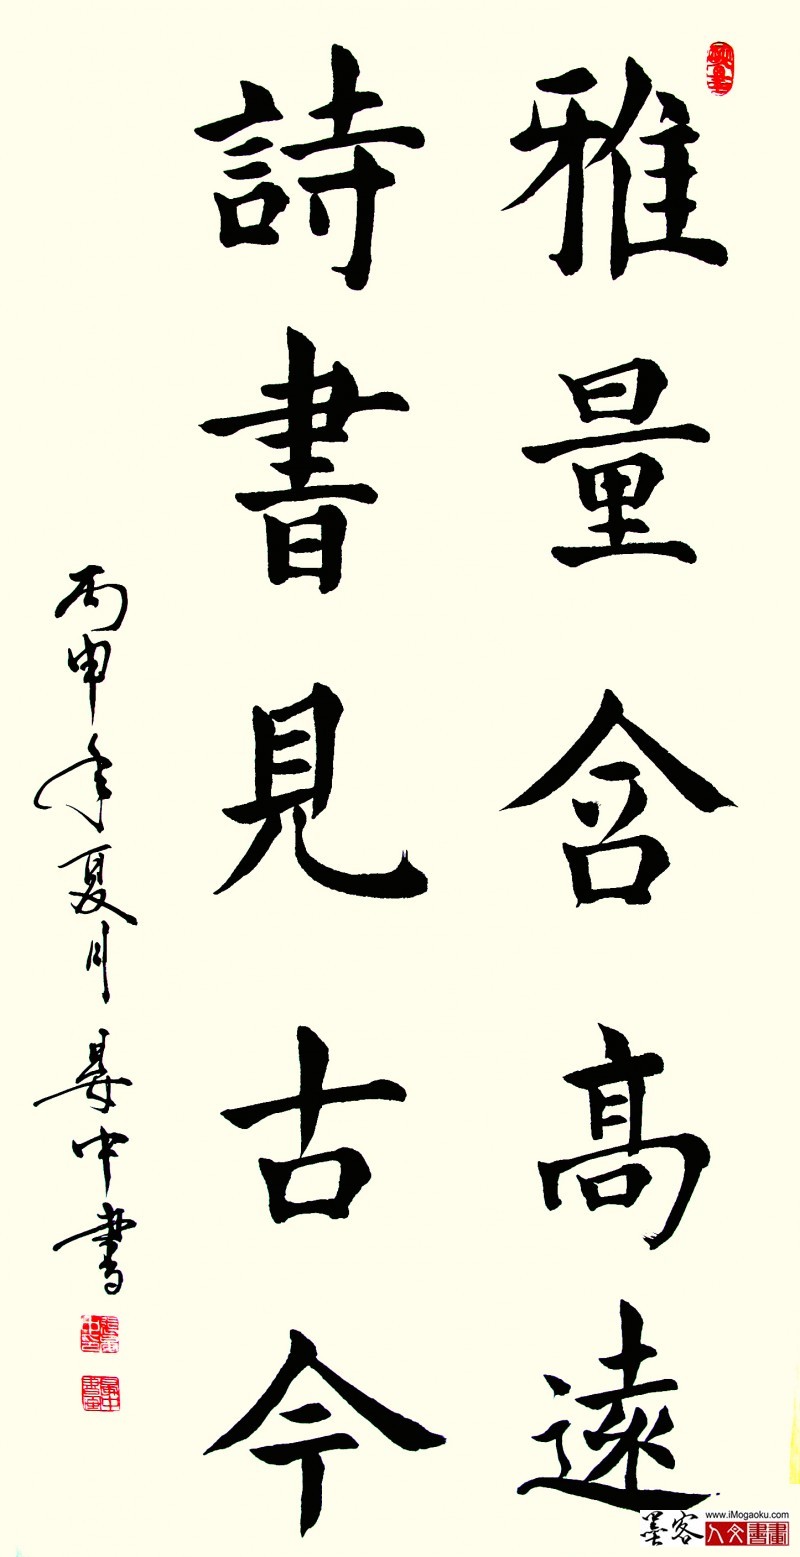 雅量含高遠
詩書見古今
丙申年夏月晏中書
墨客
www.iMogaoku.com
人文書畫